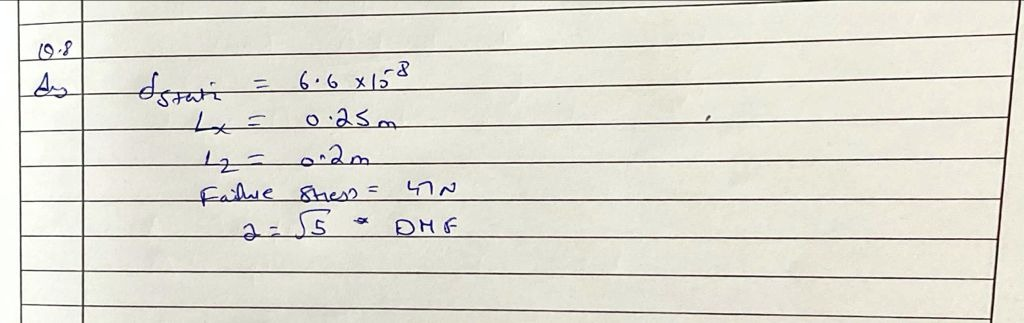 Q.8
Ans
δstati = 6.6 x 10^-8
Lx = 0.25m
L2 = 0.2m
Failure Stress = 47N
2 = √5 * DMF